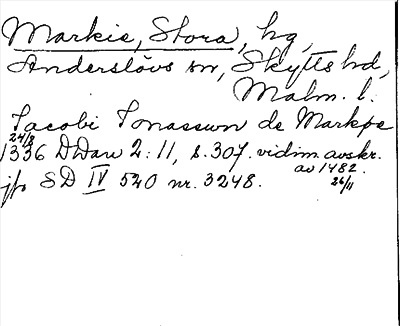 Markie, Stora, hg,
Anderslövs sn, Skytts hd,
Malm. l.
Jacobi Jonasson de Markye
24/8
1336 DDan 2:11, s. 307. vidim. avskr.
av 1482.
26/11
jfr SD IV 540 nr. 3248.